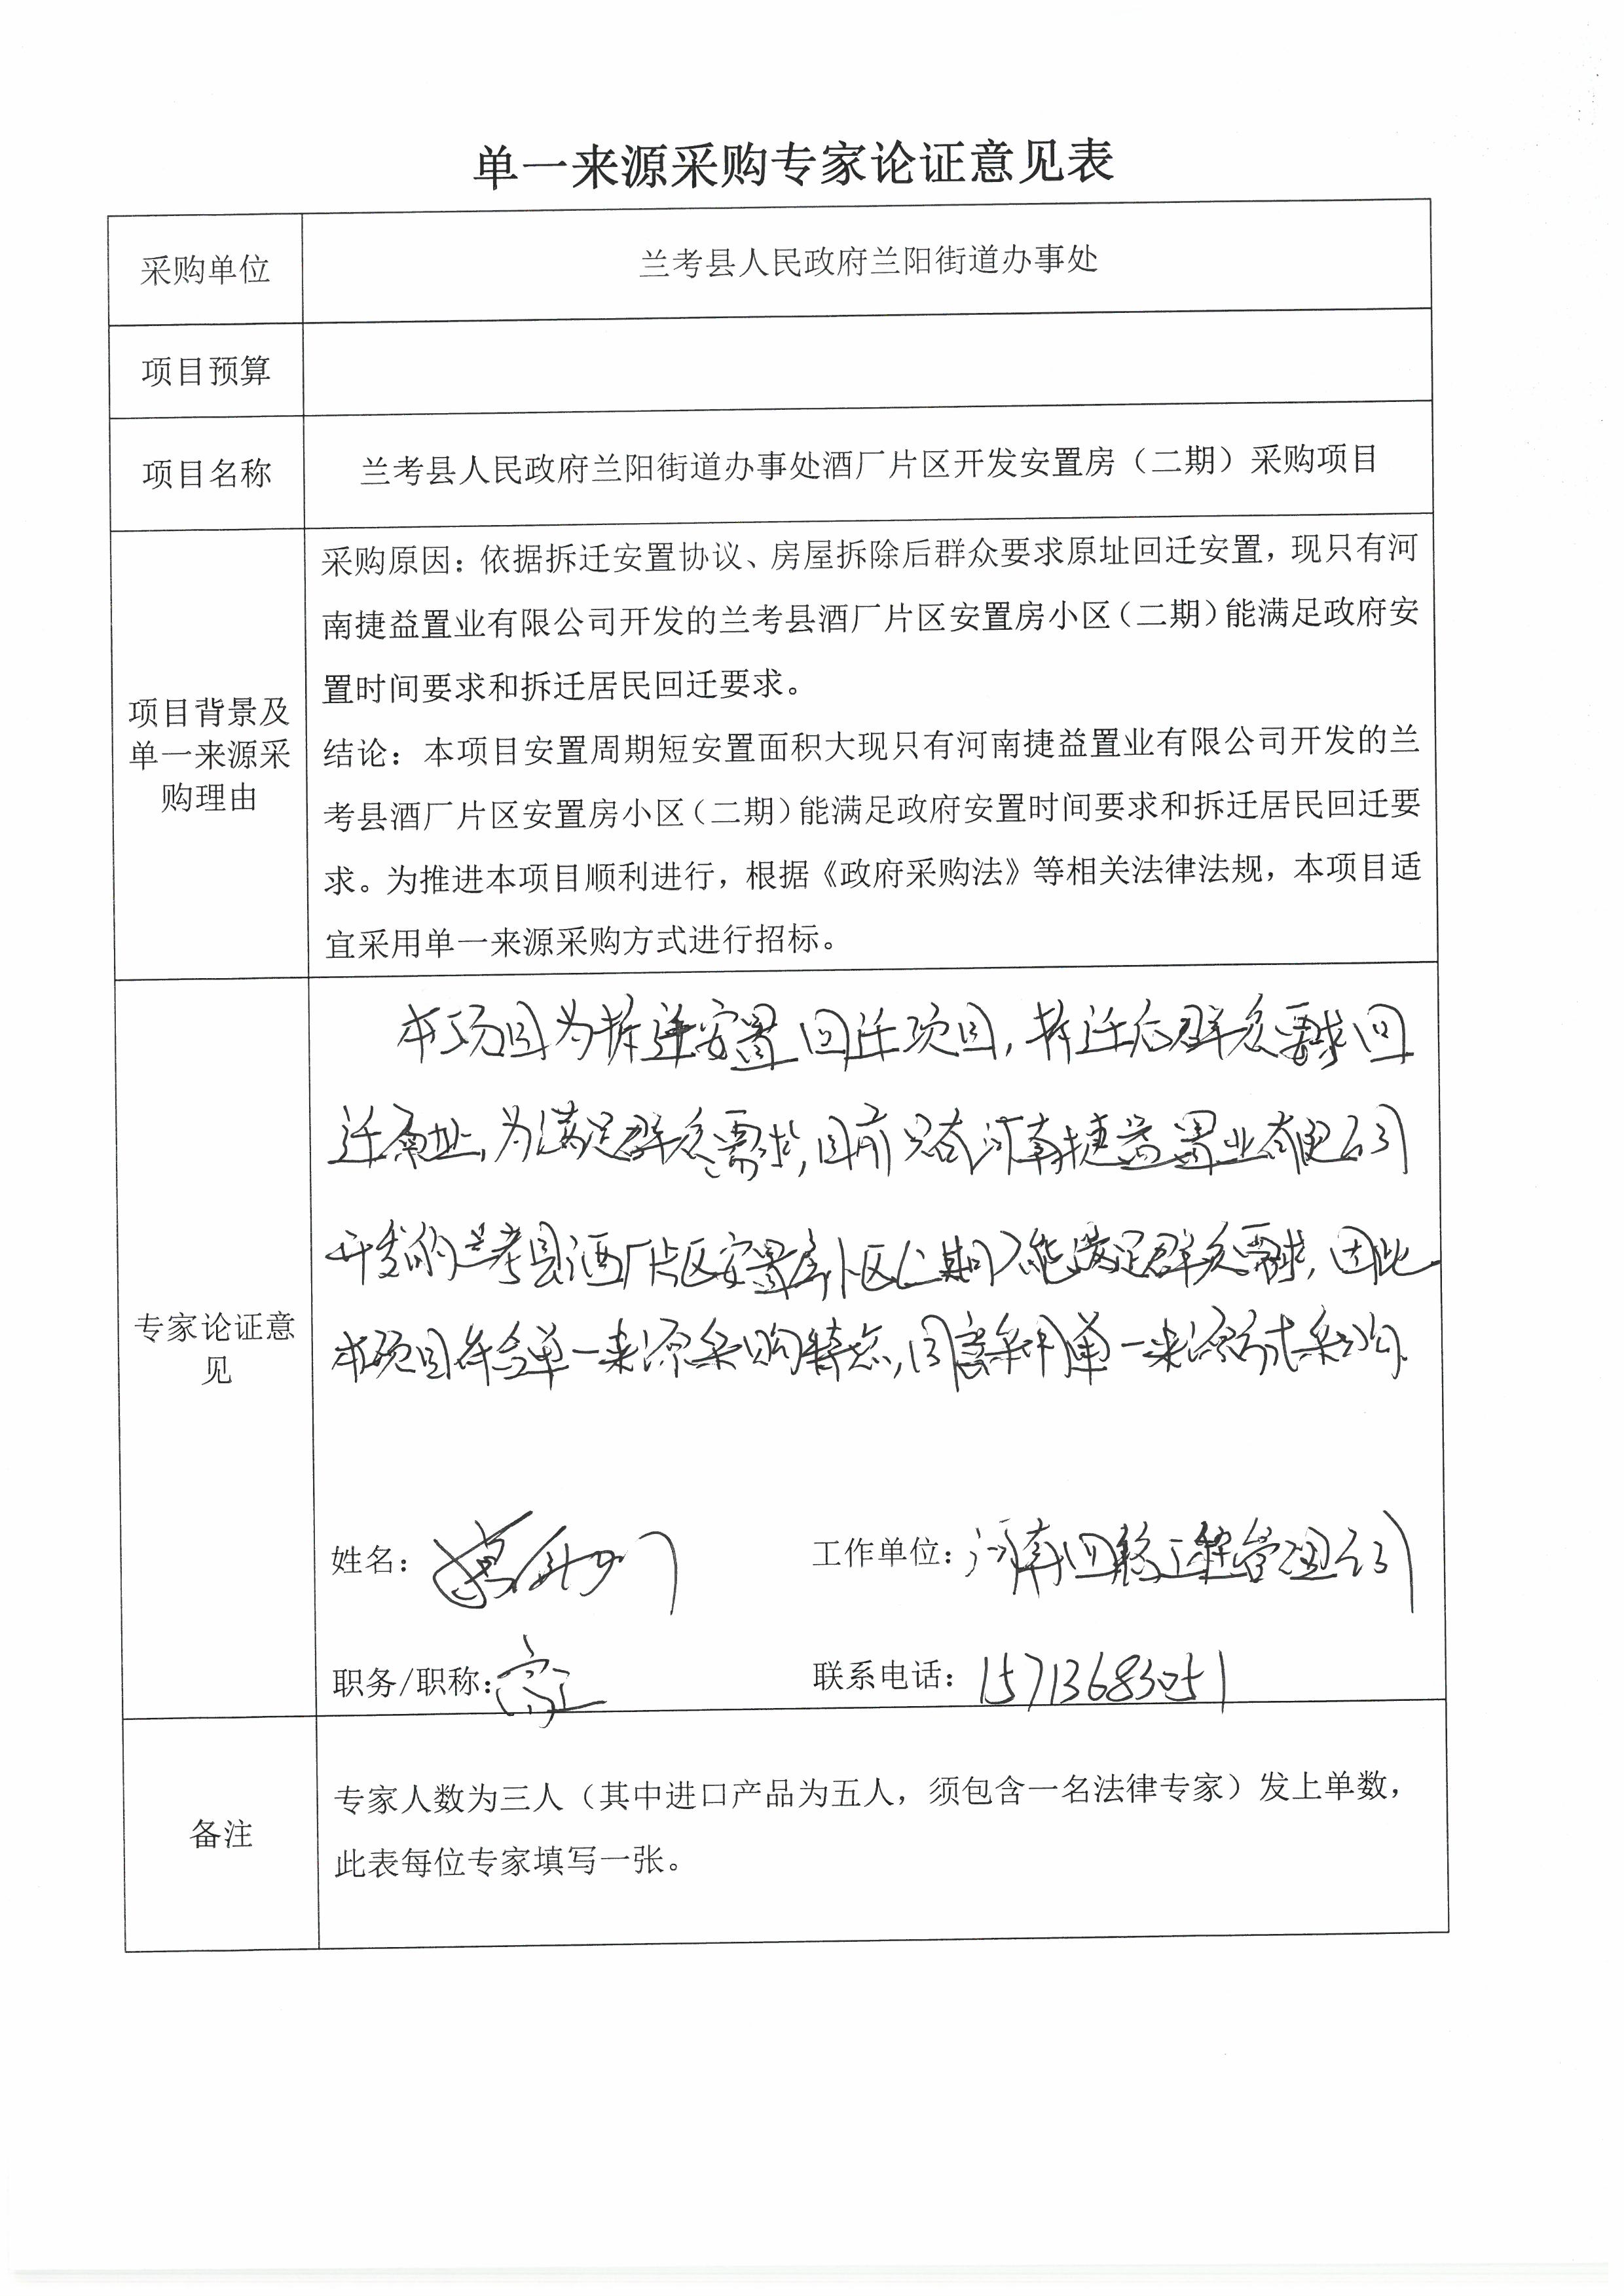 单一来源采购专家论证意见表
采购单位
兰考县人民政府兰阳街道办事处
项目预算
项目名称
兰考县人民政府兰阳街道办事处酒厂片区开发安置房（二期）采购项目
项目背景及
单一来源采
购理由
采购原因：依据拆迁安置协议、房屋拆除后群众要求原址回迁安置，现只有河
南捷益置业有限公司开发的兰考县酒厂片区安置房小区（二期）能满足政府安
置时间要求和拆迁居民回迁要求。
结论：本项目安置周期短安置面积大现只有河南捷益置业有限公司开发的兰
考县酒厂片区安置房小区（二期）能满足政府安置时间要求和拆迁居民回迁要
求。为推进本项目顺利进行，根据《政府采购法》等相关法律法规，本项目适
宜采用单一来源采购方式进行招标。
专家论证意
见
本项目为拆迁安置回迁项目，拆迁后群众要求回
迁原址，为满足群众需求，目前只有河南捷益置业有限公司
开发的兰考县酒厂片区安置房小区（二期）能满足群众需求，因此
本项目符合单一来源采购特点，同意采用单一来源方式采购.
姓名：
工作单位：河南 工程管理公司
职务/职称：高工
联系电话：15713683051
备注
专家人数为三人（其中进口产品为五人，须包含一名法律专家）发上单数，
此表每位专家填写一张。